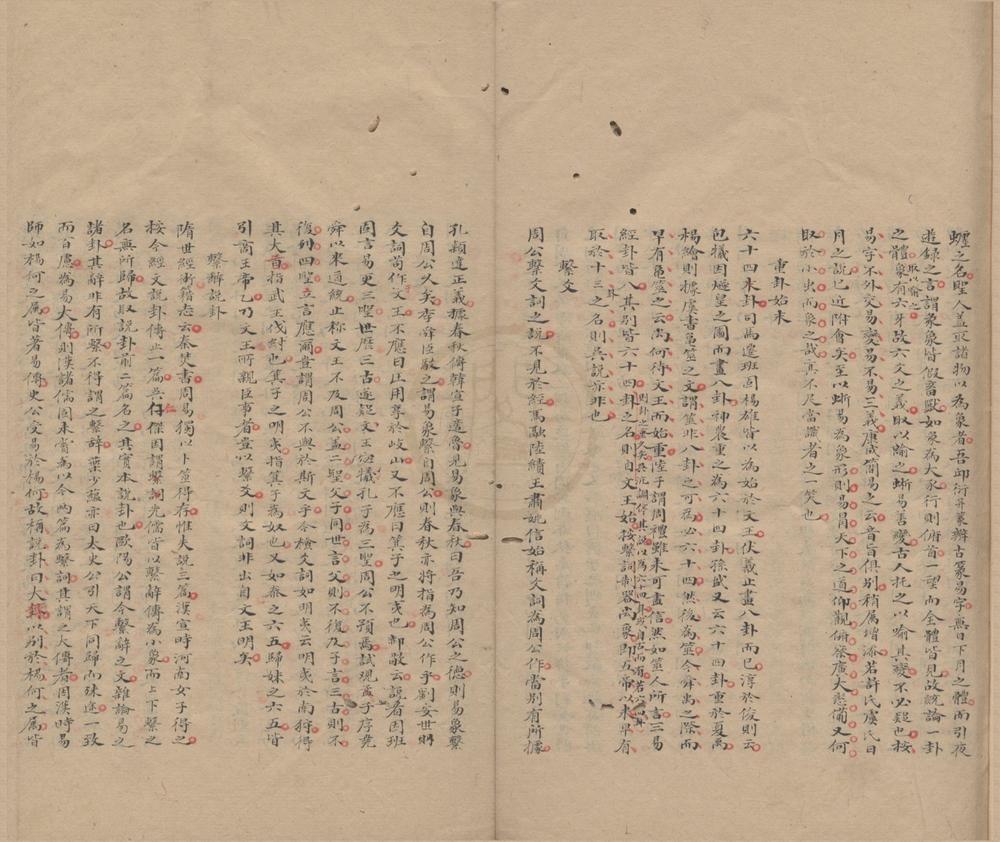 蠦之名聖人蓋取諸物以為象者吾邱衍弁篆辨古篆易字無日下月之體而引夜
遊錄之言謂彖象皆假畜獸如象為大豕行則俯首一望而全體皆見故統論一卦
之體象有六牙故六爻之義取以喻之蜥易善變古人托之以喻其變不必疑也按
取以喻之
易字不外交易變易不易三義康成簡易之云音旨俱別稍屬增添若許氏虞氏日
月之說已近附會矣至以蜥易為象形則易冒天下之道仰觀俯察廣大悉備又何
取於小虫而象之哉真不足當識者之一笑也
重卦始末
六十四卦司馬遷班固楊雄皆以為始於文王伏羲止畫八卦而已淳於俊則云
包犧因燧皇之圖而畫八卦神農重之為六十四卦孫盛又云六十四卦重於夏禹
楊繪則據虞書龜筮之文謂筮非八卦之可為必六十四然後為筮今舜禹之際而
早有龜筮之云尚何待文王而始重陸子謂周禮雖未可盡信然如筮人所言三易
經卦皆八其別皆六十四卦之名則自文王始按繫詞制器尚象即五帝以來早有
取於十三卦之名則吳說亦非也
繫爻
周公繫爻詞之說不見於經馬融陸績王肅姚信始稱爻詞為周公作當別有所據
孔穎達正義據春秋傳韓宣子適魯見易象與春秋曰吾乃知周公之德則易象繫
自周公久矣李舜臣駮之謂易象繫自周公則春秋亦將指為周公作乎劉安世則
爻詞苟作文王不應曰王用享於岐山又不應曰箕子之明夷也郝敬云說者因班
固言易更三聖世歷三古遂疑文王宓犧孔子為三聖周公不預焉試觀孟子序堯
舜以來道統止稱文王不及周公蓋二聖父子同世言父則不復及子言三古則不
復列四聖立言應爾豈謂周公不與於斯文乎今檢爻詞如明夷云明夷於南狩得
其大首指武王伐紂也箕子之明夷指箕子為奴也又如泰之六五歸妹之六五皆
引商王帝乙乃文王所親臣事者豈以繫爻則文詞非出自文王明矣
繫辭說卦
隋世經術籍志云秦焚書周易獨以卜筮得存惟失說三篇漢宣時河南女子得之
按今經文說卦傳止一篇吳仁傑因謂繫詞先儒皆以繫辭傳為小象而上下繫之
名無所歸故取說卦前二篇名之其實本說卦也歐陽公謂今繫辭之文雜論易之
諸卦其辭非有所繫不得謂之繫辭葉少蘊亦曰太史公引天下同歸而殊途一致
而百慮為易大傳則漢諸儒固未嘗為以今兩篇為繫詞其謂之大傳者因漢時易
師如楊何之屬皆著易傳史公受易於楊何故稱說卦曰大傳以別於楊何之屬皆